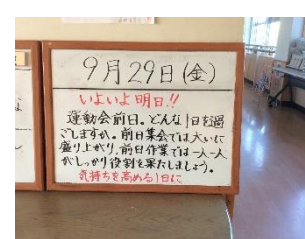 9月29日(金)
いよいよ明日!!
運動会前日。どんな1日を過
ごしますか。前日集会では大いに
盛り上がり、前日作業では一人一人
がしっかり役割を果たしましょう。
気持ちを高める1日に